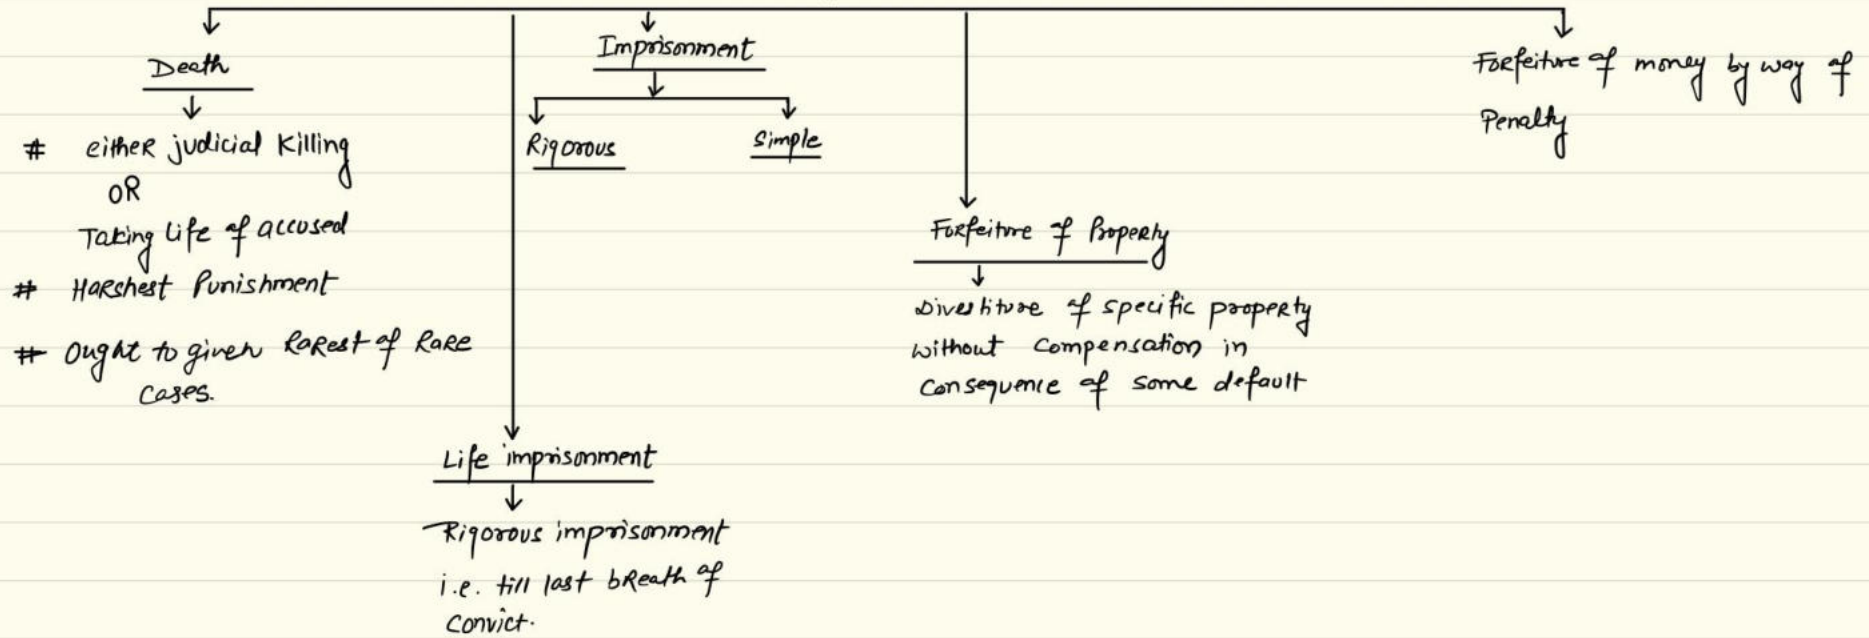 Death
# either judicial killing
OR
Taking Life of accused
# Harshest Punishment
# Ought to given Rarest of Rare
Cases.
Life imprisonment
Rigorous imprisonment
i.e. till last breath of
Convict.
Imprisonment
Rigorous
Simple
Forfeiture of Property
Divestiture of specific property
without compensation in
consequence of some default
Forfeiture of money by way of
Penalty